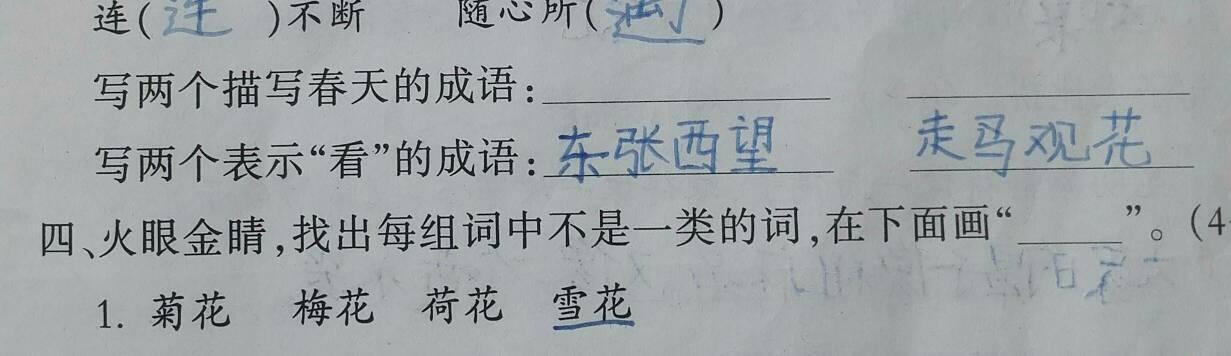 连( 连 )不断 随心所( )
写两个描写春天的成语:
写两个表示“看”的成语:东张西望 走马观花
四、火眼金睛,找出每组词中不是一类的词,在下面画“______”。(4
1. 菊花 梅花 荷花 雪花